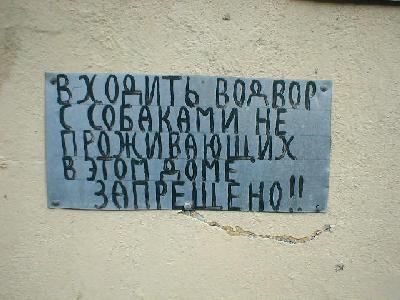 ВХОДИТЬ ВОДВОР
С СОБАКАМИ НЕ
ПРОЖИВАЮЩИХ
В ЭТОМ ДОМЕ
ЗАПРЕЩЕНО!!